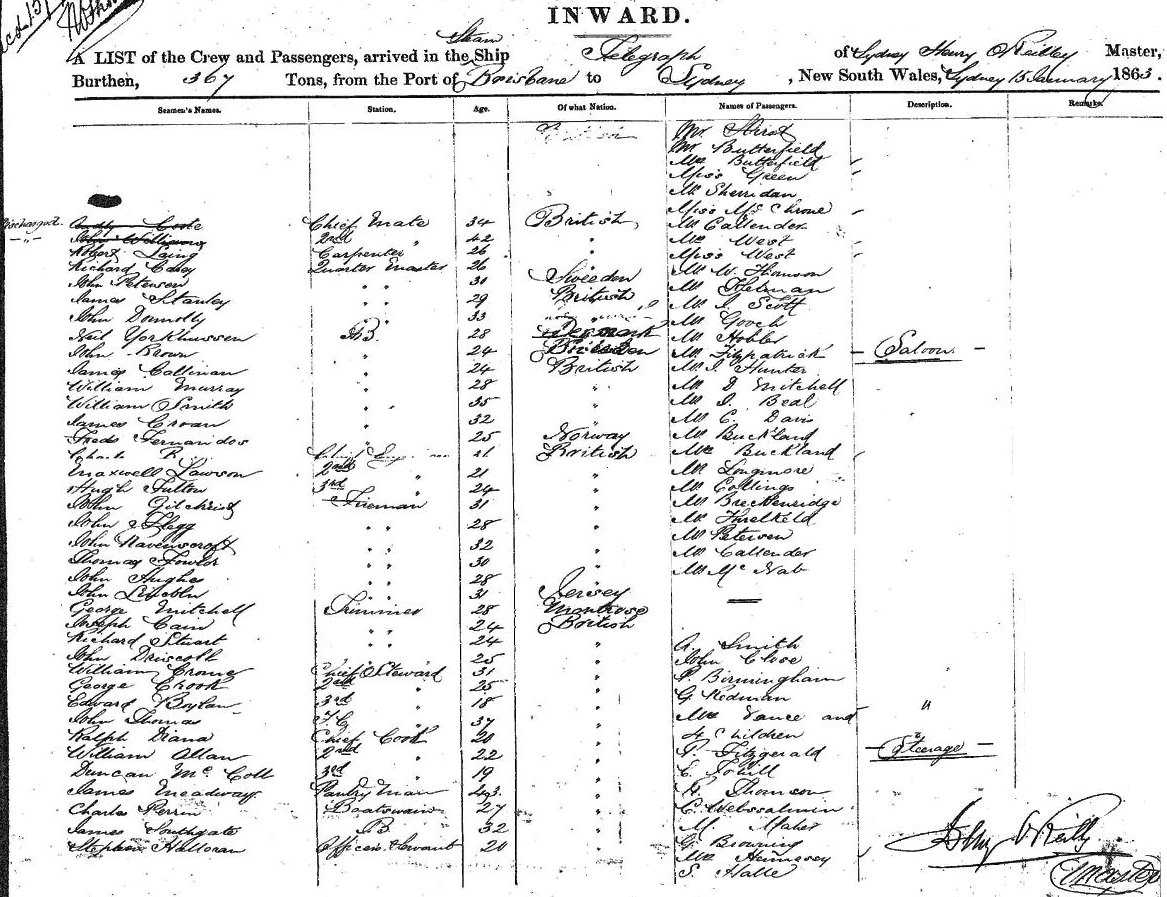 INWARD.
Steam
A LIST of the Crew and Passengers, arrived in the Ship Telegraph of Sydney Henry O'Reilley Master,
Burthen, 367 Tons, from the Port of Brisbane to Sydney, New South Wales, Sydney 15 January 1863.
Seamen's Names. Station. Age. Of what Nation. Names of Passengers. Description. Remarks.
Mr Butterfield
Mrs Butterfield
Miss Green
Mr Sherridan
Discharged Coote Chief Mate 34 British Miss
-"- John Williams 2nd " 42 " Mr Callender
Robert Laing Carpenter 26 " Mrs West
Richard Carey Quarter Master 26 " Miss West
John Petersen " " 31 Sweeden Mr W. Thomson
James Stanley " " 29 British Mr
John Donnolly " " 33 Mr J. Scott
Neil AB. 28 Denmark Mr Gooch
John Brown " 24 Sweeden Mr Hobler
James Callinan " 24 British Mr Fitzpatrick - Saloon -
William Murray " 28 " Mr J. Hunter
William Smith " 35 " Mr D Mitchell
James Croan " 32 " Mr J. Beal
Fernandos " 25 Norway Mr C. Davis
Charles R. Chief 41 British Mr Buckland
Maxwell Lawson 2nd " 21 " Mrs Buckland
Hugh Fulton 3rd " 24 " Mr Longmore
John Gilchrist Fireman 31 " Mr Collings
John Flegg " " 28 " Mr Breckenridge
John Ravenscroft " " 32 " Mr Threlkeld
Thomas Fowler " " 30 " Mr Petersen
John Hughes " " 28 " Mr Callender
John Lincoln " " 31 Jersey Mr McNab
George Mitchell Trimmer 28 Montrose
Joseph Cain " " 24 British
Richard Stuart " " 24 " A. Smith
John Driscoll " " 25 " John Close
William Crome Chief Steward 31 " P. Birmingham
George Crook 2nd " 25 " G. Redman
Edward Boylan 3rd " 18 " Mrs Vance and "
John Thomas 37 " 4 Children
Ralph Diana Chief Cook 20 " Fitzgerald - Steerage -
William Allan 2nd " 22 " E. Tohill
Duncan McColl 3rd " 19 " H. Thomson
James Meadway Pantry Man 43 "
Charles Perrin Boatswain 27 " M Maher
James Southgate 32 " G. Browning
Stephen Halloran Officers Servant 20 " Mrs Hennesey
S. Halle
Henry O'Reilly
Master